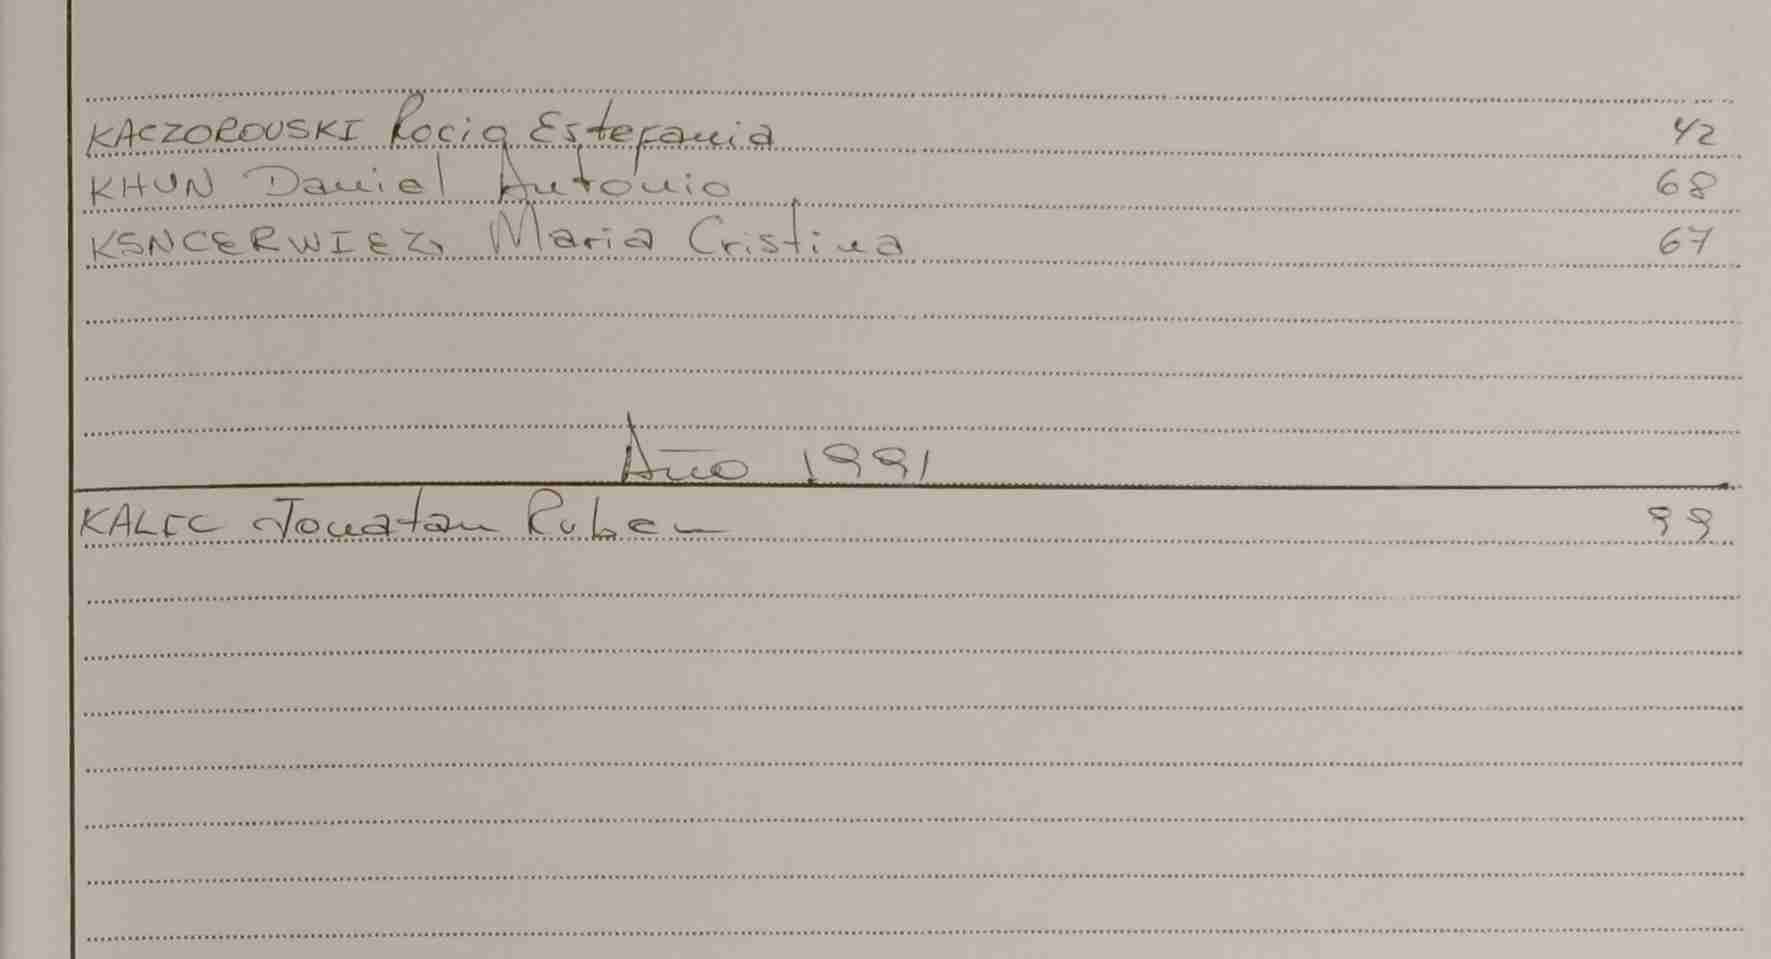 KACZOROUSKI Rocio Estefania 42
KHUN Daniel Antonio 68
KSNCERWIEZ Maria Cristina 67
Año 1991
KALEC Jonatan Ruben 99